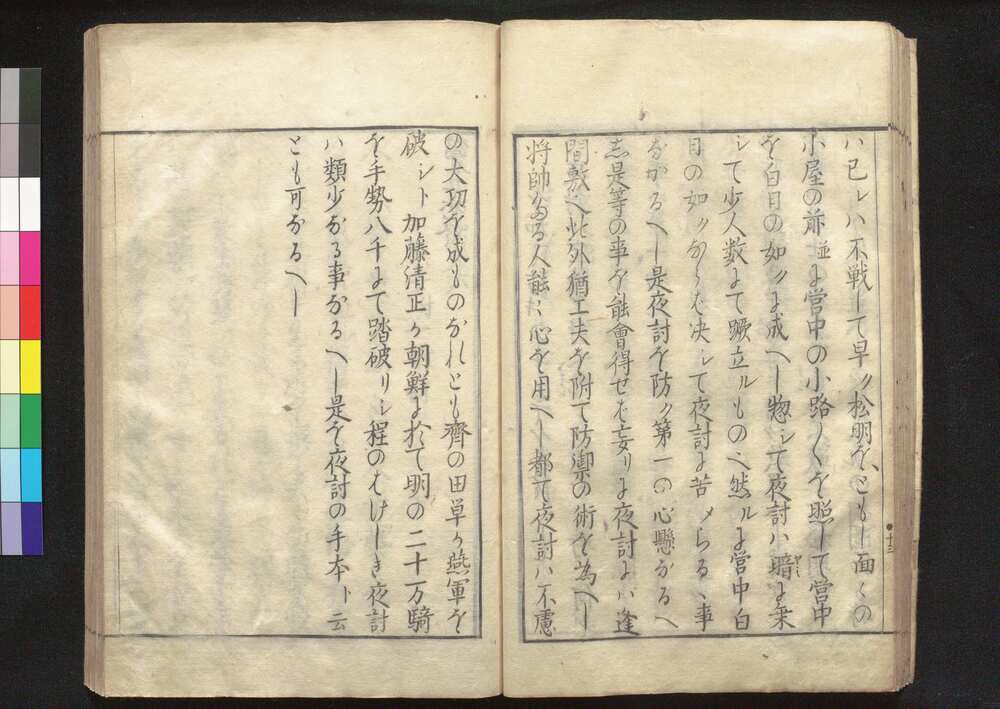 ハ已レハ不戦して早ク松明を、ともし面〻の
小屋の前並に営中の小路〳〵を照して営中
を白日の如クに成へし惣シて夜討ハ暗に乗
シて少人数にて蹶立ルもの也然ルに営中白
日の如クならは决シて夜討に苦メらるゝ事
なかるへし是夜討を防ク第一の心懸なるへ
し是等の事を能會得せは妄リに夜討にハ逢
間敷也此外猶工夫を附て防禦の術を為へし
将帥たる人能〻心を用へし都て夜討ハ不慮
十三
の大功を成ものなれとも齊の田単か燕軍を
破シト加藤清正か朝鮮に於て明の二十万騎
を手勢八千にて踏破リシ程のはけしき夜討
ハ類少なる事なるへし是を夜討の手本ト云
とも可なるへし